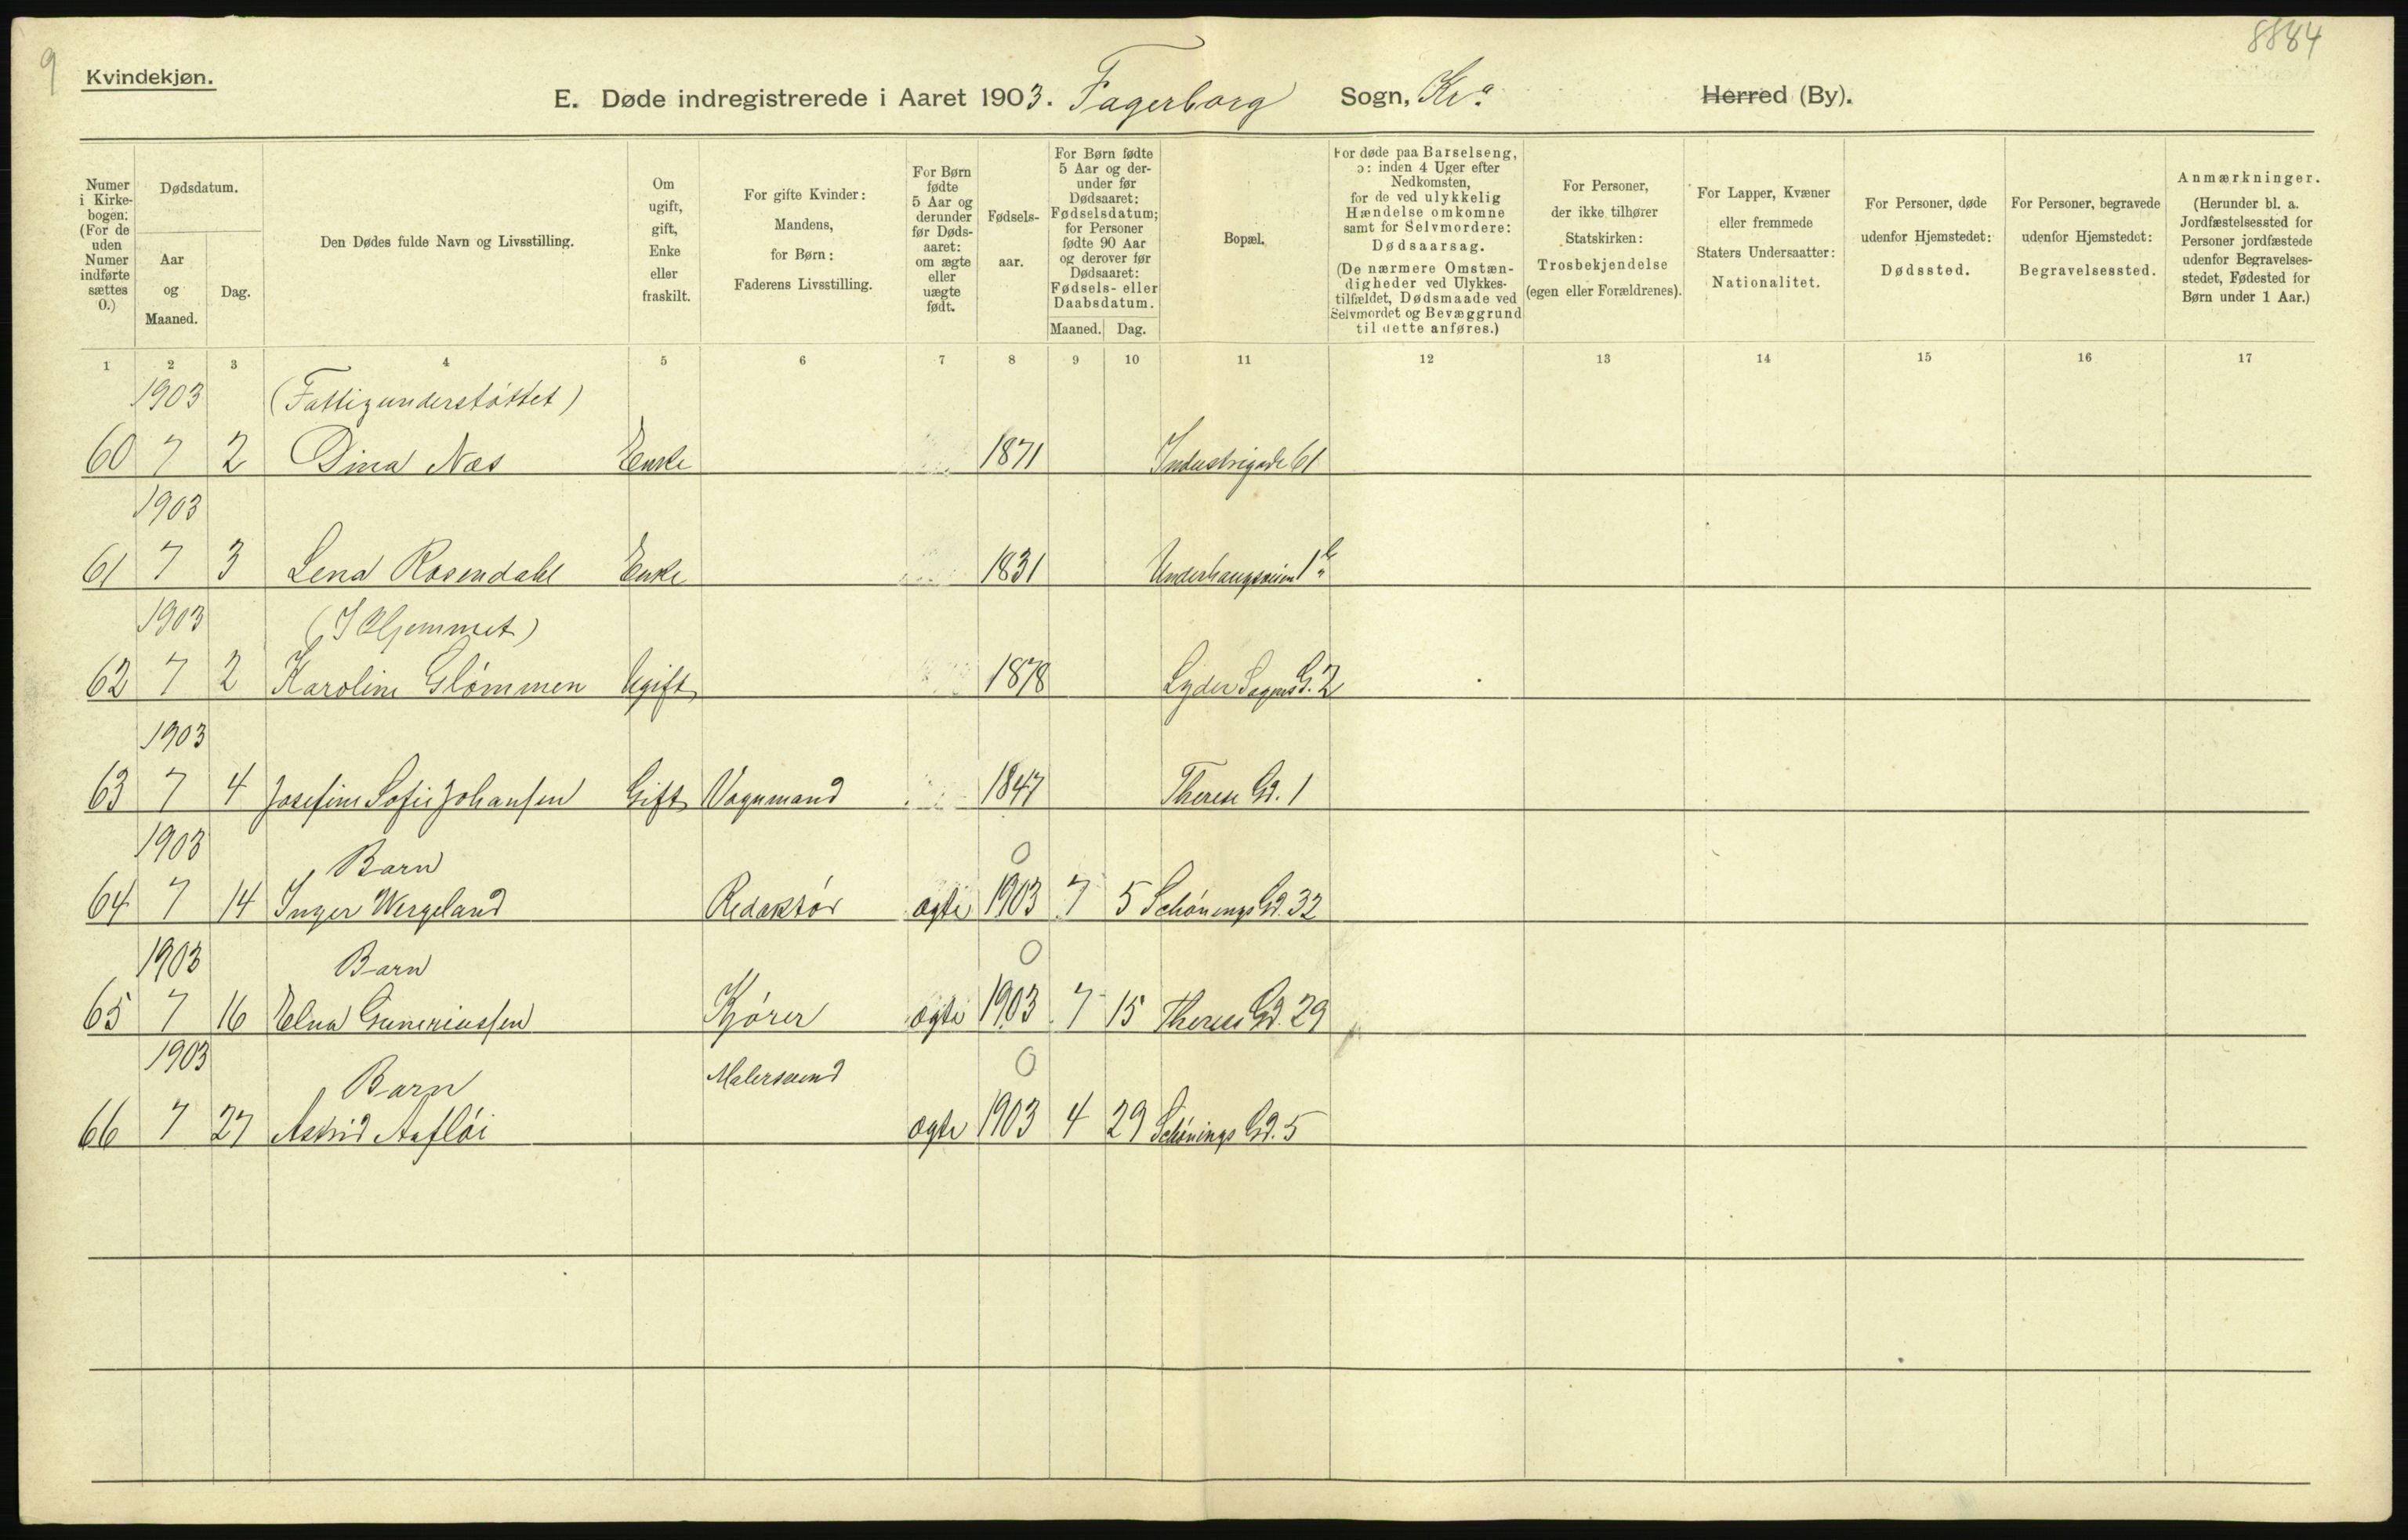 9
8884
Kvindekjøn.
E. Døde indregistrerede i Aaret 1903. Fagerborg Sogn, Kra. Herred (By).
Numer i Kirkebogen: (For de uden Numer indførte sættes 0.)
Dødsdatum.
Aar og Maaned.
Dag.
Den Dødes fulde Navn og Livsstilling.
Om ugift, gift, Enke eller fraskilt.
For gifte Kvinder: Mandens, for Børn: Faderens Livsstilling.
For Børn fødte 5 Aar og derunder før Dødsaaret: om ægte eller uægte født.
Fødselsaar.
For Børn fødte 5 Aar og derunder før Dødsaaret: Fødselsdatum; for Personer fødte 90 Aar og derover før Dødsaaret: Fødsels- eller Daabsdatum.
Maaned. Dag.
Bopæl.
For døde paa Barselseng, ɔ: inden 4 Uger efter Nedkomsten, for de ved ulykkelig Hændelse omkomne samt for Selvmordere: Dødsaarsag.
(De nærmere Omstændigheder ved Ulykkestilfældet, Dødsmaade ved Selvmordet og Bevæggrund til dette anføres.)
For Personer, der ikke tilhører Statskirken: Trosbekjendelse (egen eller Forældrenes).
For Lapper, Kvæner eller fremmede Staters Undersaatter: Nationalitet.
For Personer, døde udenfor Hjemstedet: Dødssted.
For Personer, begravede udenfor Hjemstedet: Begravelsessted.
Anmærkninger. (Herunder bl. a. Jordfæstelsessted for Personer jordfæstede udenfor Begravelsesstedet, Fødested for Børn under 1 Aar.)
1 2 3 4 5 6 7 8 9 10 11 12 13 14 15 16 17
1903 (Fattigunderstøttet)
60 7 2 Dina Næs Enke 1871 Industrigade 61
1903
61 7 3 Lena Rosendahl Enke 1831 Underhaugsveien 1
1903
62 7 2 Karoline Glømmen Ugift 1878 Lyder Sagens G. 2
1903
63 7 4 Josefine Sofie Johansen Gift Vognmand 1847 Therese Gd. 1
1903 Barn 0
64 7 14 Inger Wergeland Redaktør ægte 1903 7 5 Schønings Gd. 32
1903 Barn 0
65 7 16 Elna Guneriussen Kjører ægte 1903 7 15 Therese Gd. 29
1903 Barn Malersvend 0
66 7 27 Astrid Aafløi ægte 1903 4 29 Schønings Gd. 5